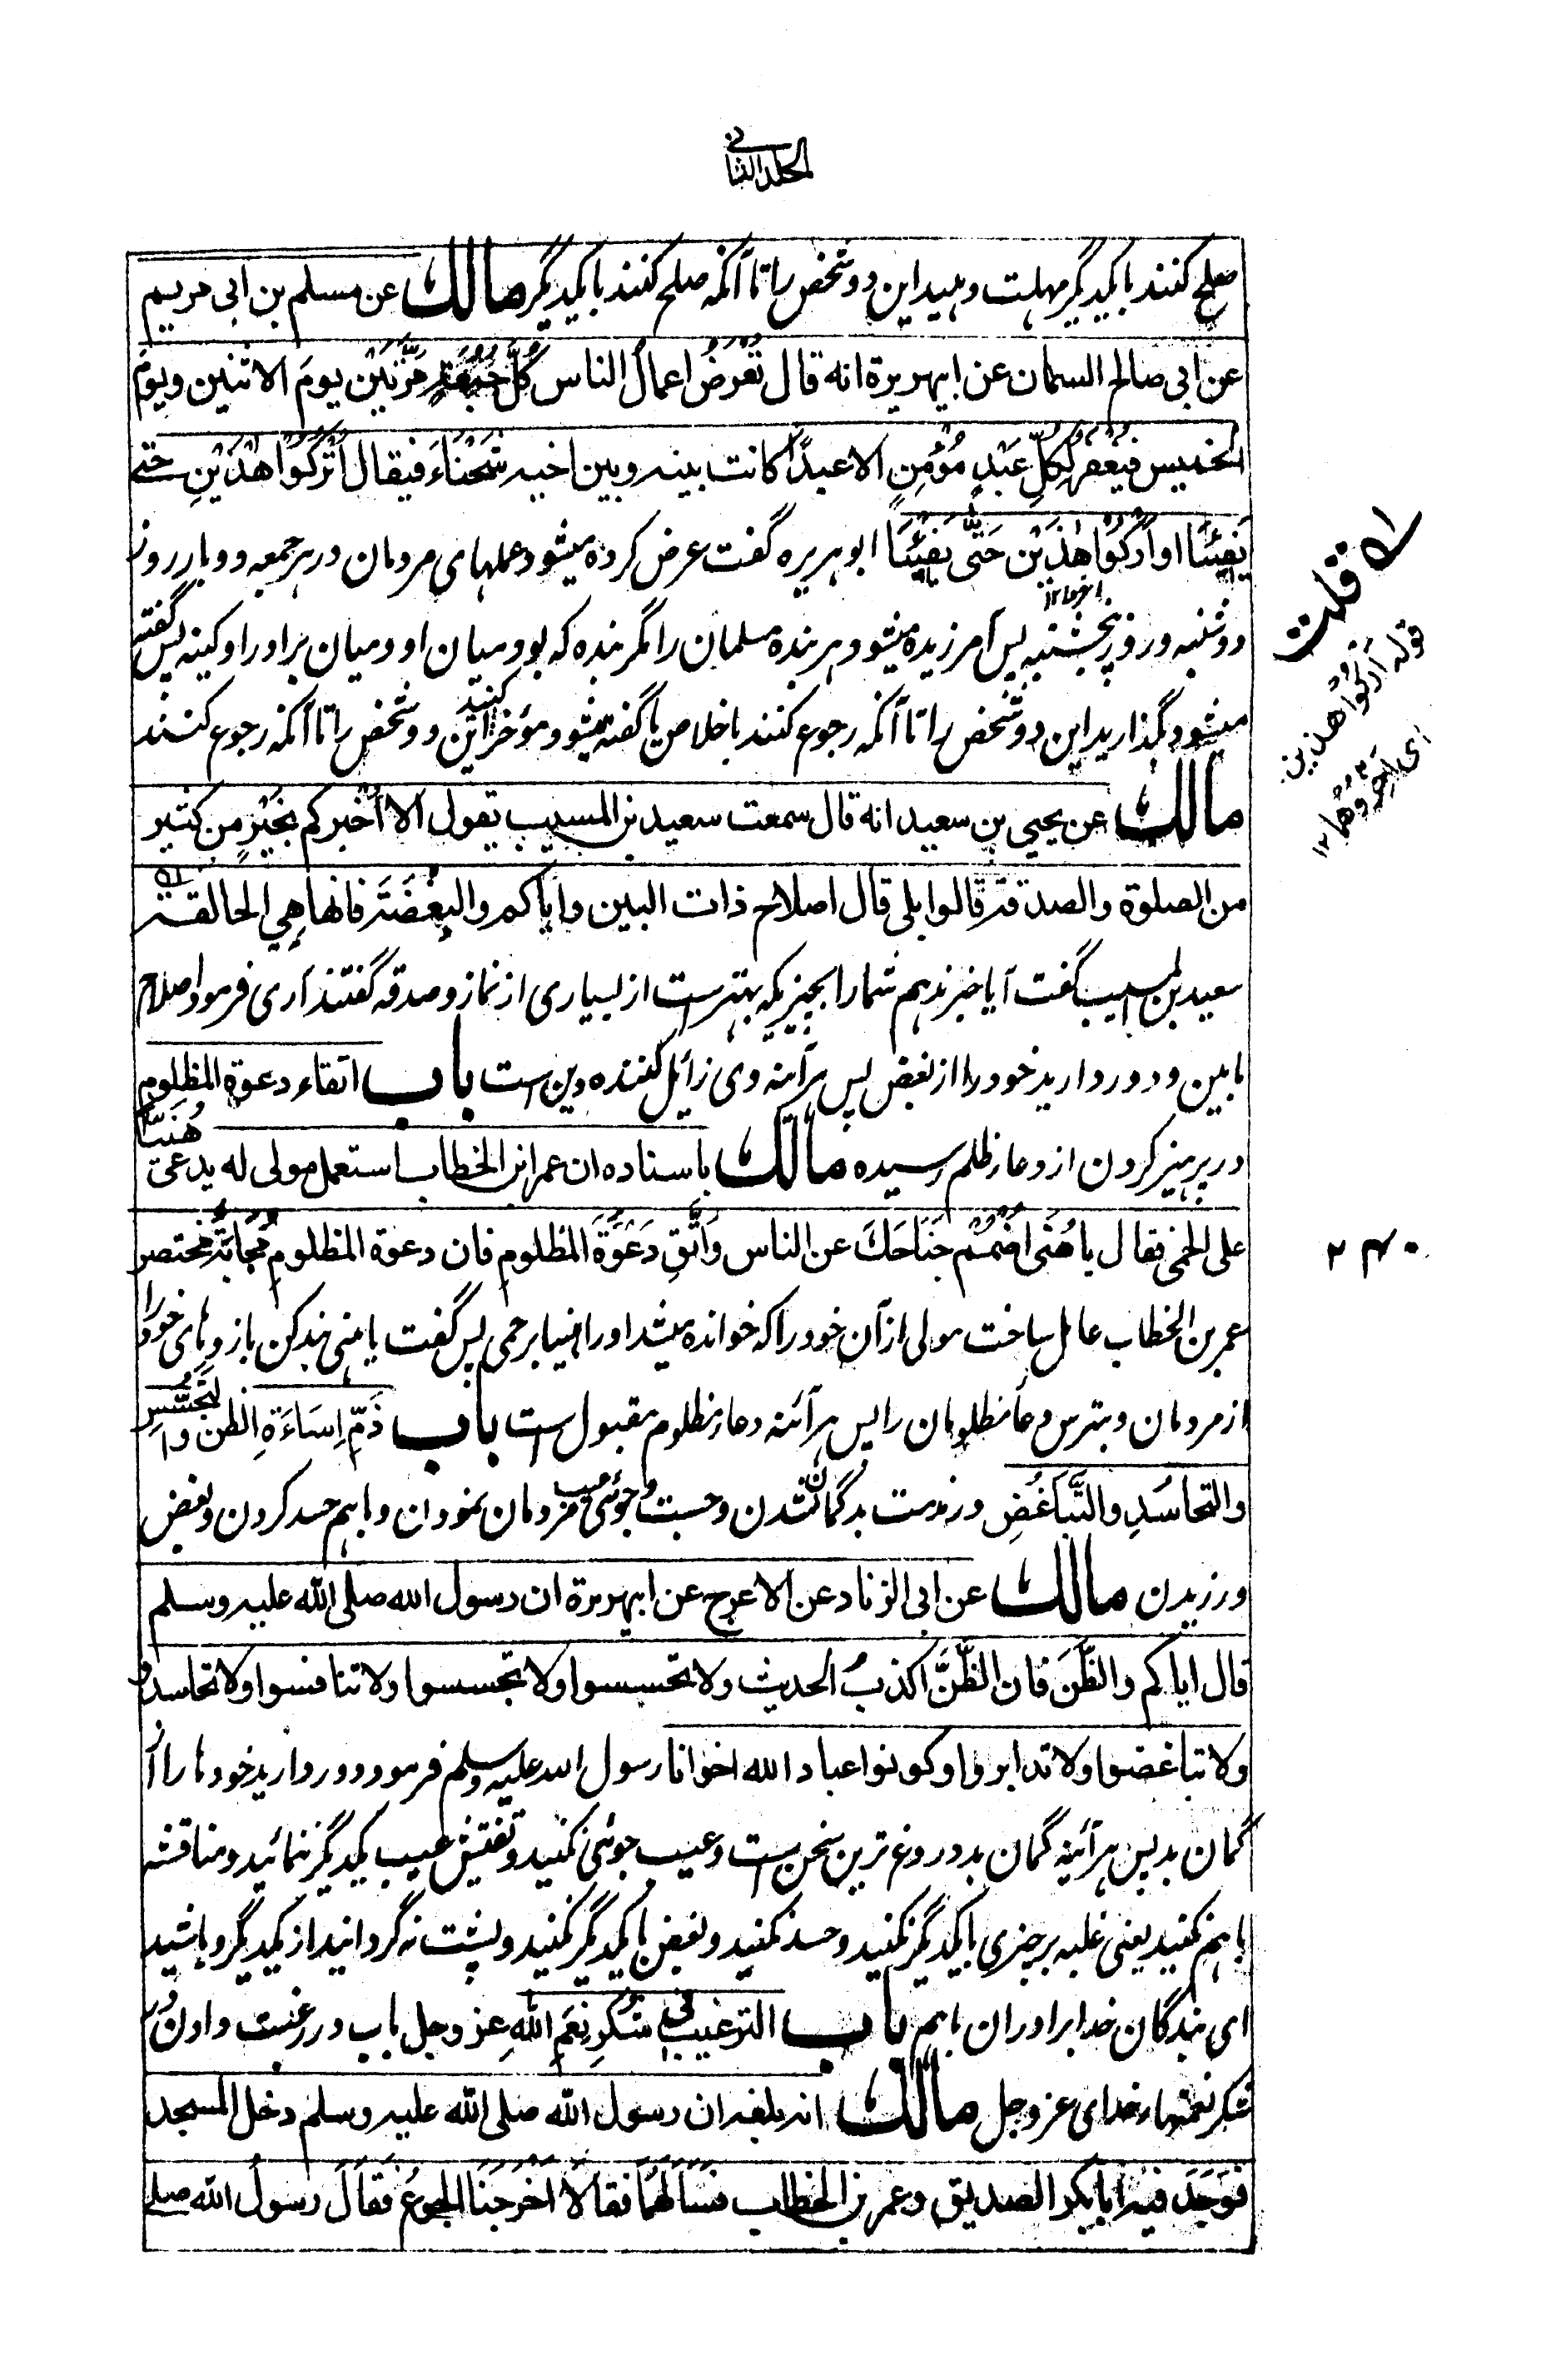 الجلد الثانی
صلح کنند با یکدیگر مهلت دهید این دو شخص را تا آنکه صلح کنند با یکدیگر مالك عن مسلم بن ابی مریم
عن ابی صالح السمان عن ابیهریرة انه قال تُعْرَضُ اعمالُ الناس کُلَّ جُمُعَةٍ مَرَّتَیْنِ یومَ الاثنین ویومَ
الخمیس فیُغفر لِکُلِّ عَبْدٍ مُؤْمِنٍ الا عبدًا کانت بینه وبین اخیه شَحْنَاءُ فیقال اُتْرُکُوْا هٰذَیْنِ حتی
یَفِیْئَا او اُرْکُوْا هٰذَیْنِ حَتّٰی یَفِیْئَا ابو هریره گفت عرض کرده میشود عملهای مردمان در هر جمعه دو بار روز
دوشنبه و روز پنجشنبه پس آمرزیده میشود هر بنده مسلمان را مگر بنده که بود میان او و میان برادر او کینه پس گفته
میشود بگذارید این دو شخص را تا آنکه رجوع کنند باخلاص یا گفته میشود مؤخر کنید این دو شخص را تا آنکه رجوع کنند
مالك عن یحیی بن سعید انه قال سمعت سعید بن المسیب یقول الا اُخْبِرکم بِخَیْرٍ من کثیر
من الصلوة والصدقة قالوا بلی قال اصلاح ذات البین وایاکم والبِغْضَةَ فانها هِی الحالقة
سعید بن المسیب گفت آیا خبر ندهم شما را بچیزیکه بهتر ست از بسیاری از نماز و صدقه گفتند آری فرمود اصلاح
مابین و دور دارید خود را از بغض پس هر آینه وی زائل کننده دین است باب اتقاء دعوة المظلوم
در پرهیز کردن از دعاء ظلم رسیده مالك باسناده ان عمر ابن الخطاب استعمل مولی له یدعی هُنَیًّا
علی الحمی فقال یا هُنَی اضْمُمْ جَنَاحَكَ عن الناس وَاتَّقِ دَعْوَةَ المظلومِ فان دعوة المظلومِ مُجَابَةٌ مختصر
عمر بن الخطاب عامل ساخت مولی از آن خود را که خوانده میشد او را هنیا بر حمی پس گفت یا هنی بند کن بازوهای خود را
از مردمان و بترس دعاء مظلومان را پس هر آئنه دعاء مظلوم مقبول است باب ذَمِّ اِسَاءَةِ الظن والتَّجَسُّسِ
والتحاسُدِ والتَّبَاغُضِ در مذمت بدگمان شدن و جست و جوئی عیب مردمان نمودن و باهم حسد کردن و بغض
ورزیدن مالك عن ابی الزناد عن الاعرج عن ابیهریرة ان رسول الله صلی الله علیه وسلم
قال ایاکم والظَّنَّ فان الظَّنَّ اکذبُ الحدیث ولا تحسسوا ولا تجسسوا ولا تنافسوا ولا تحاسدوا
ولا تباغضوا ولا تدابروا وکونوا عباد الله اخوانا رسول الله علیه وسلم فرمود دور دارید خودها را از
گمان بد پس هر آئینه گمان بد دروغ ترین سخن ست و عیب جوئی نکنید و تفتیش عیب یکدیگر ننمائید و مناقشه
باهم نکنید یعنی غلبه بر چیزی با یکدیگر نکنید و حسد نکنید و بغض با یکدیگر نکنید و پشت نه گردانید از یکدیگر و باشید
ای بندگان خدا برادران باهم باب الترغیب فی شُکْرِ نِعَمِ اللهِ عز وجل باب در رغبت دادن بر
شکر نعمتهاء خدای عز وجل مالك انه بلغه ان رسول الله صلی الله علیه وسلم دخل المسجد
فَوَجَدَ فیه ابا بکر الصدیق وعمر بن الخطاب فسَاَلَهُمَا فقَالَا اَخْرَجَنَا الجوعُ فقَالَ رسولُ الله صلی
قلت
قوله ارکوا هذین
ای اخروهما ۱۲
۲۴۰